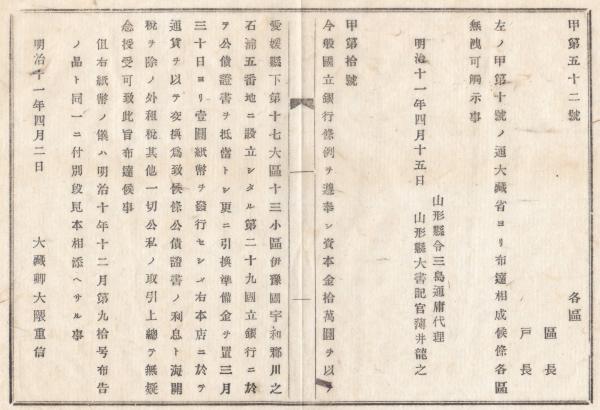 甲第五十二號
各區
區長
戸長
左ノ甲第十號ノ通大藏省ヨリ布達相成候條各區
無洩可觸示事
山形縣令三島通庸代理
明治十一年四月十五日　山形縣大書記官薄井龍之
甲第拾號
今般國立銀行條例ヲ遵奉シ資本金拾萬圓ヲ以テ
愛媛縣下第十七大區十三小區伊豫國宇和郡川之
石浦五番地ニ設立シタル第二十九國立銀行ニ於テ
公債證書ヲ抵當トシ更ニ引換準備金ヲ置三月
三十日ヨリ壹圓紙幣ヲ發行セシメ右本店ニ於テ
通貨ヲ以テ交換爲致候條公債證書ノ利息ト海關
税ヲ除ノ外租税其他一切公私ノ取引上總テ無疑
念授受可致此旨布達候事
但右紙幣ノ儀ハ明治十年十二月第九拾号布告
ノ品ト同一ニ付別段見本相添ヘサル事
明治十一年四月二日　大藏卿大隈重信